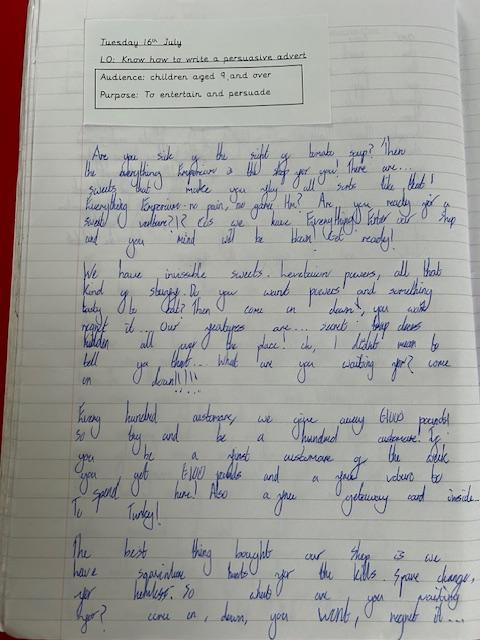 Tuesday 16th July
LO: Know how to write a persuasive advert
Audience: children aged 9 and over
Purpose: To entertain and persuade
Are you sick of the sight of tomato soup? Then
the Everything Emporium is the shop for you! There are...
sweets that make you fly all sorts like that!
Everything Emporium no pain, no game Hm? Are you ready for a
sweet venture?!? Cos we have Everything! Enter our shop
and you mind will be blown Get ready!
We have invisible sweets. Levetawn powers, all that
kind of stuff. Do you want powers and something
tasty to eat? Then come on down, you wont
regret it... Our features are... secret trap doors
hidden all over the place! oh, I didnt mean to
tell ya that... What are you waiting for? come
on down!!!!!
Every hundred customare, we give away £1000 pounds!
So try and be a hundred customare! If
you be a first customare of the week
you get £100 pounds and a free
to spend here! Also a free getaway card inside...
To Turky!
The best thing bought our shop is we
have for the kids. Spare change,
for So whats are you waiting
for? come on, down, you wont, regret it...